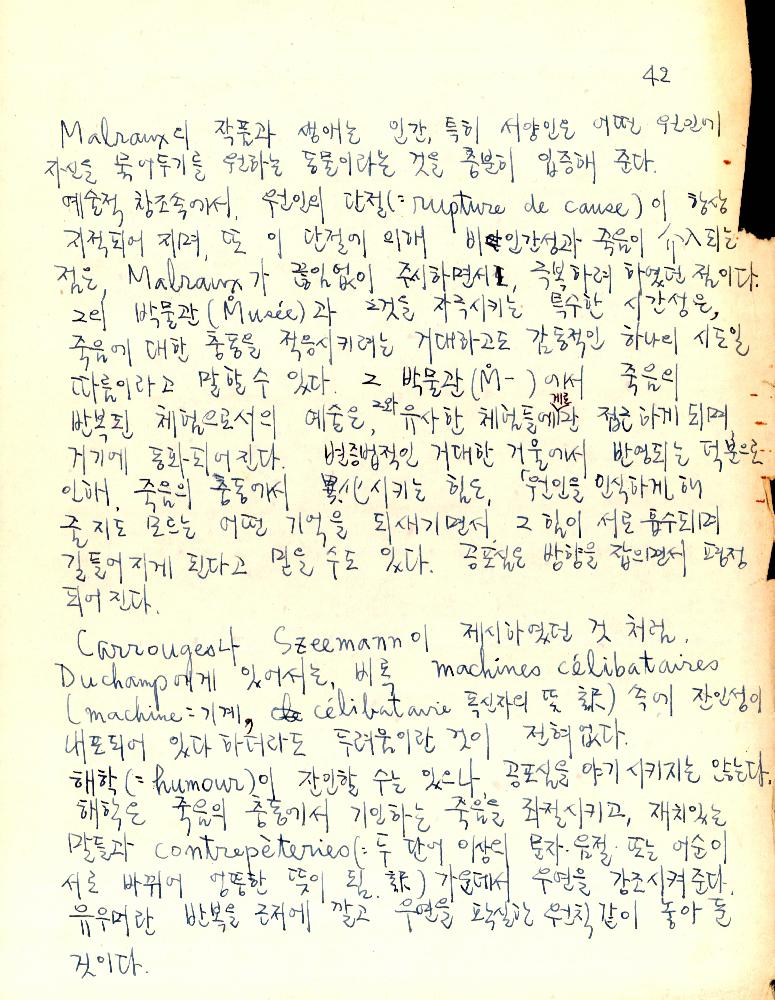 42
Malraux의 작품과 생애는 인간, 특히 서양인은 어떤 원인에
자신을 묶어두기를 원하는 동물이라는 것을 충분히 입증해 준다.
예술적 창조속에서, 원인의 단절(=rupture de cause)이 항상
지적되어 지며, 또 이 단절에 의해 비인간성과 죽음이 介入되는
점은, Malraux가 끊임없이 주시하면서, 극복하려 하였던 점이다.
그의 박물관(Musée)과 그것을 자극시키는 특수한 시간성은,
죽음에 대한 충동을 적응시키려는 거대하고도 감동적인 하나의 시도일
따름이라고 말할 수 있다. 그 박물관(M-)에서 죽음의
반복된 체험으로서의 예술은, 그와 유사한 체험들에게로 접근하게 되며
거기에 동화되어진다. 변증법적인 거대한 거울에서 반영되는 덕분으로
인해, 죽음의 충동에서 異化시키는 힘도, 원인을 인식하게 해
줄지도 모르는 어떤 기억을 되새기면서, 그 힘이 서로 흡수되며
길들어지게 된다고 믿을 수도 있다. 공포심은 방향을 잡으면서 고정
되어진다.
Carrouges나 Szeemann이 제시하였던 것 처럼,
Duchamp에게 있어서는, 비록 machines célibataires
(machine=기계, célibataire 독신자의 뜻 譯) 속에 잔인성이
내포되어 있다 하더라도 두려움이란 것이 전혀없다.
해학(=humour)이 잔인할 수는 있으나, 공포심을 야기시키지는 않는다.
해학은 죽음의 충동에서 기인하는 죽음을 좌절시키고, 재치있는
말들과 contrepèteries(=두 단어 이상의 문자·음절 또는 어순이
서로 바뀌어 엉뚱한 뜻이 됨. 譯) 가운데서 우연을 강조시켜준다.
유우머란 반복을 근저에 깔고 우연을 원칙같이 놓아 둔
것이다.